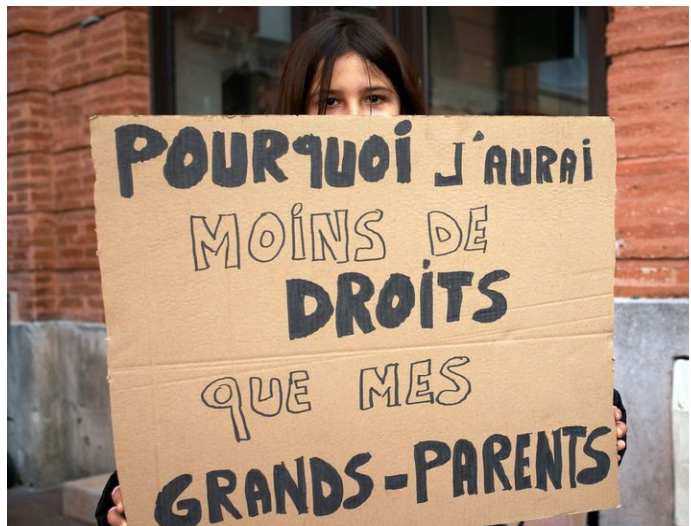 POURQUOI J'AURAI
MOINS DE
DROITS
QUE MES
GRANDS-PARENTS